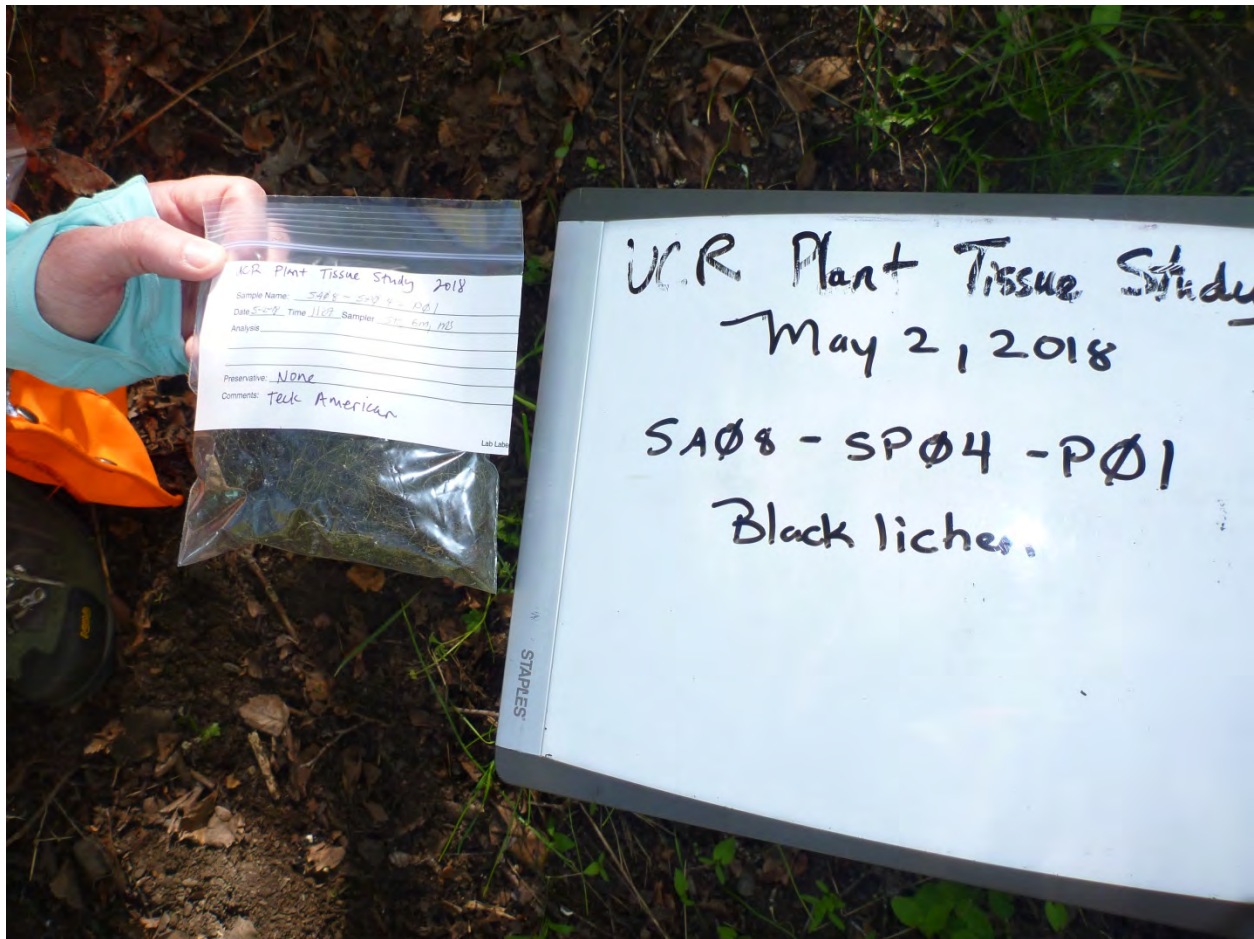 UCR Plant Tissue Study 2018
Sample Name: SA08 - SP04 - P01
Date 5-2-18 Time 1109 Sampler
Analysis
Preservative: None
Comments: Teck American
Lab Labe
UCR Plant Tissue Study
May 2, 2018
SAØ8 - SPØ4 - PØ1
Black lichen
STAPLES